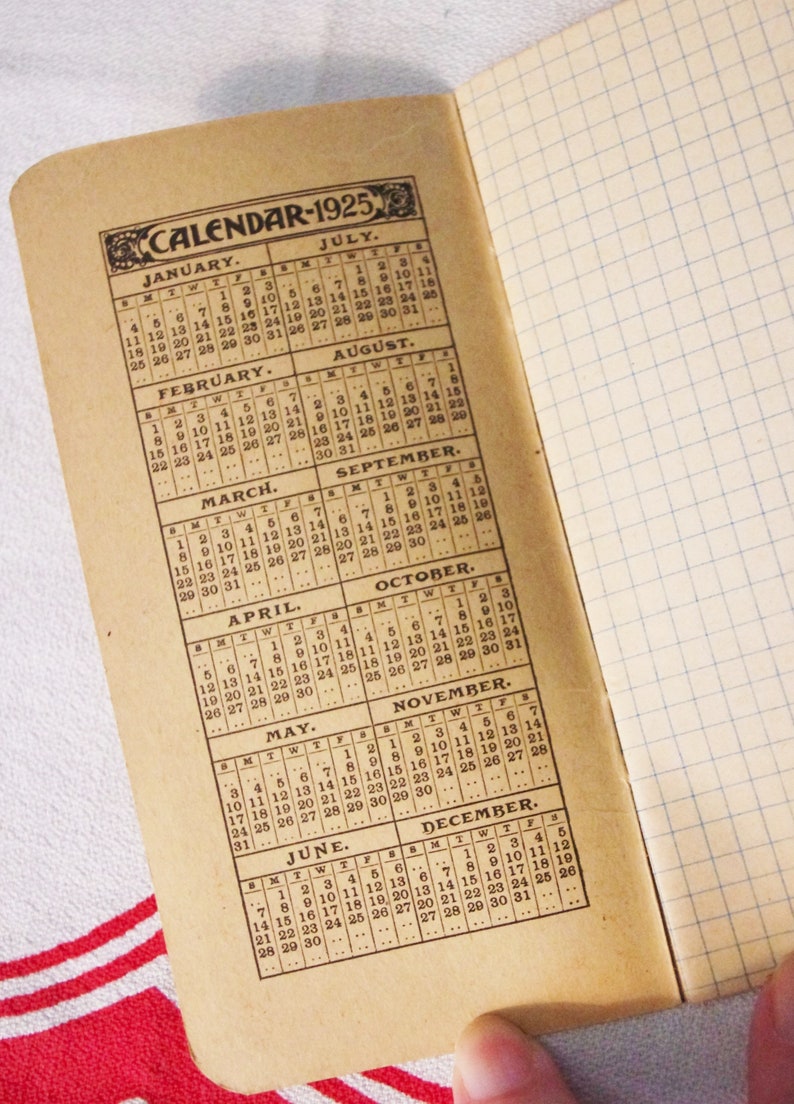 CALENDAR-1925
JANUARY.
S M T W T F S
1 2 3
4 5 6 7 8 9 10
11 12 13 14 15 16 17
18 19 20 21 22 23 24
25 26 27 28 29 30 31
FEBRUARY.
S M T W T F S
1 2 3 4 5 6 7
8 9 10 11 12 13 14
15 16 17 18 19 20 21
22 23 24 25 26 27 28
MARCH.
S M T W T F S
1 2 3 4 5 6 7
8 9 10 11 12 13 14
15 16 17 18 19 20 21
22 23 24 25 26 27 28
29 30 31
APRIL.
S M T W T F S
1 2 3 4
5 6 7 8 9 10 11
12 13 14 15 16 17 18
19 20 21 22 23 24 25
26 27 28 29 30
MAY.
S M T W T F S
1 2
3 4 5 6 7 8 9
10 11 12 13 14 15 16
17 18 19 20 21 22 23
24 25 26 27 28 29 30
31
JUNE.
S M T W T F S
1 2 3 4 5 6
7 8 9 10 11 12 13
14 15 16 17 18 19 20
21 22 23 24 25 26 27
28 29 30
JULY.
S M T W T F S
1 2 3 4
5 6 7 8 9 10 11
12 13 14 15 16 17 18
19 20 21 22 23 24 25
26 27 28 29 30 31
AUGUST.
S M T W T F S
1
2 3 4 5 6 7 8
9 10 11 12 13 14 15
16 17 18 19 20 21 22
23 24 25 26 27 28 29
30 31
SEPTEMBER.
S M T W T F S
1 2 3 4 5
6 7 8 9 10 11 12
13 14 15 16 17 18 19
20 21 22 23 24 25 26
27 28 29 30
OCTOBER.
S M T W T F S
1 2 3
4 5 6 7 8 9 10
11 12 13 14 15 16 17
18 19 20 21 22 23 24
25 26 27 28 29 30 31
NOVEMBER.
S M T W T F S
1 2 3 4 5 6 7
8 9 10 11 12 13 14
15 16 17 18 19 20 21
22 23 24 25 26 27 28
29 30
DECEMBER.
S M T W T F S
1 2 3 4 5
6 7 8 9 10 11 12
13 14 15 16 17 18 19
20 21 22 23 24 25 26
27 28 29 30 31